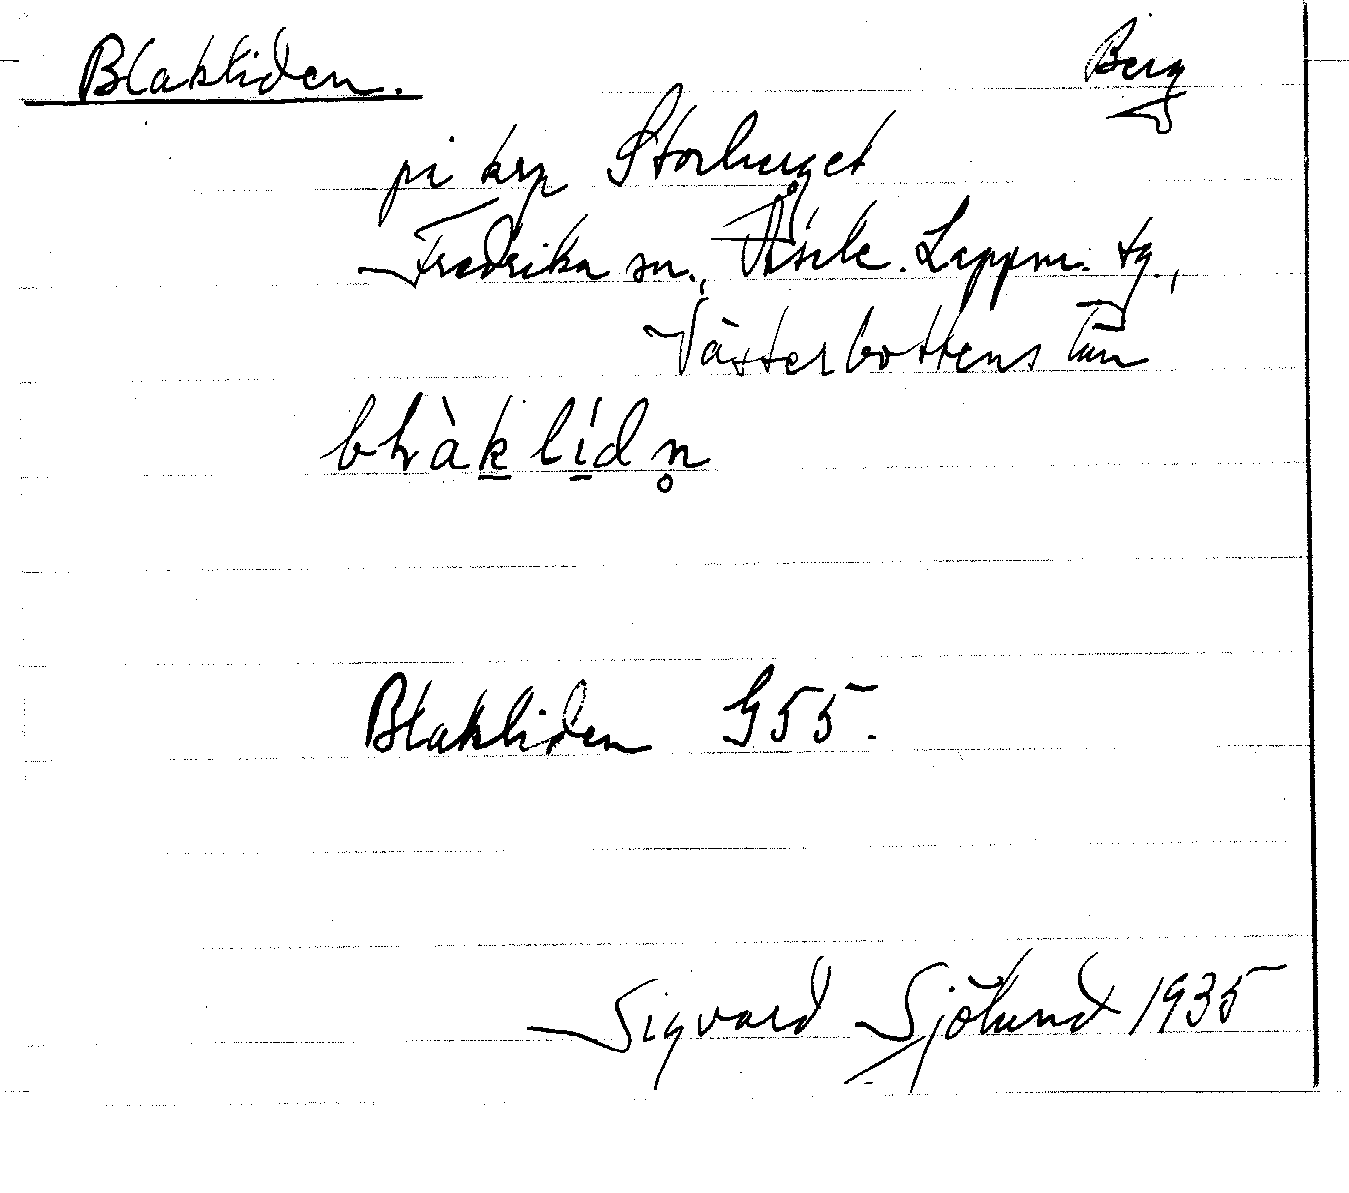 Blakliden.
Berg
på krp Storberget
Fredrika sn., Åsele Lappm. tg.,
Västerbottens län
Blakliden G55.
Sigvard Sjölund 1935